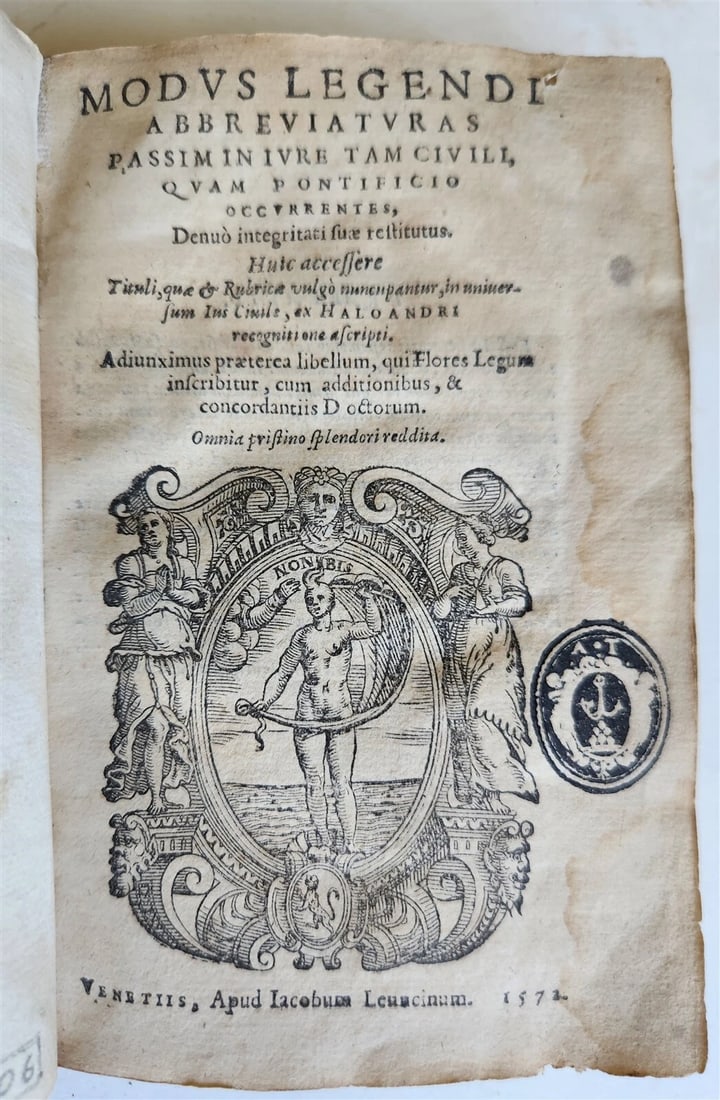 MODVS LEGENDI
ABBREVIATVRAS
PASSIM IN IVRE TAM CIVILI,
QVAM PONTIFICIO
OCCVRRENTES,
Denuò integritati ſuæ reſtitutus.
Huic acceſſère
Tituli, quæ & Rubricæ vulgò nuncupantur, in vniuer-
ſum Ius Ciuile, ex HALOANDRI
recognitione aſcripti.
Adiunximus præterea libellum, qui Flores Legum
inſcribitur, cum additionibus, &
concordantiis Doctorum.
Omnia priſtino ſplendori reddita.
A·T
VENETIIS, Apud Iacobum Leuncinum. 1572.
06